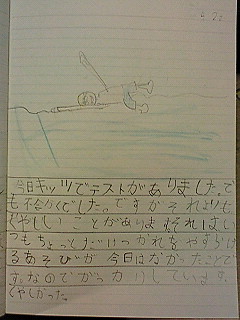 今日キッツでテストがありました。で
も不合かくでした。ですがそれよりも、
くやしいことがあります。それはい
つもちょっとだけつかれをやすらげ
るあそびが今日はなかったことで
す。なのでがっかりしています。
くやしかった。